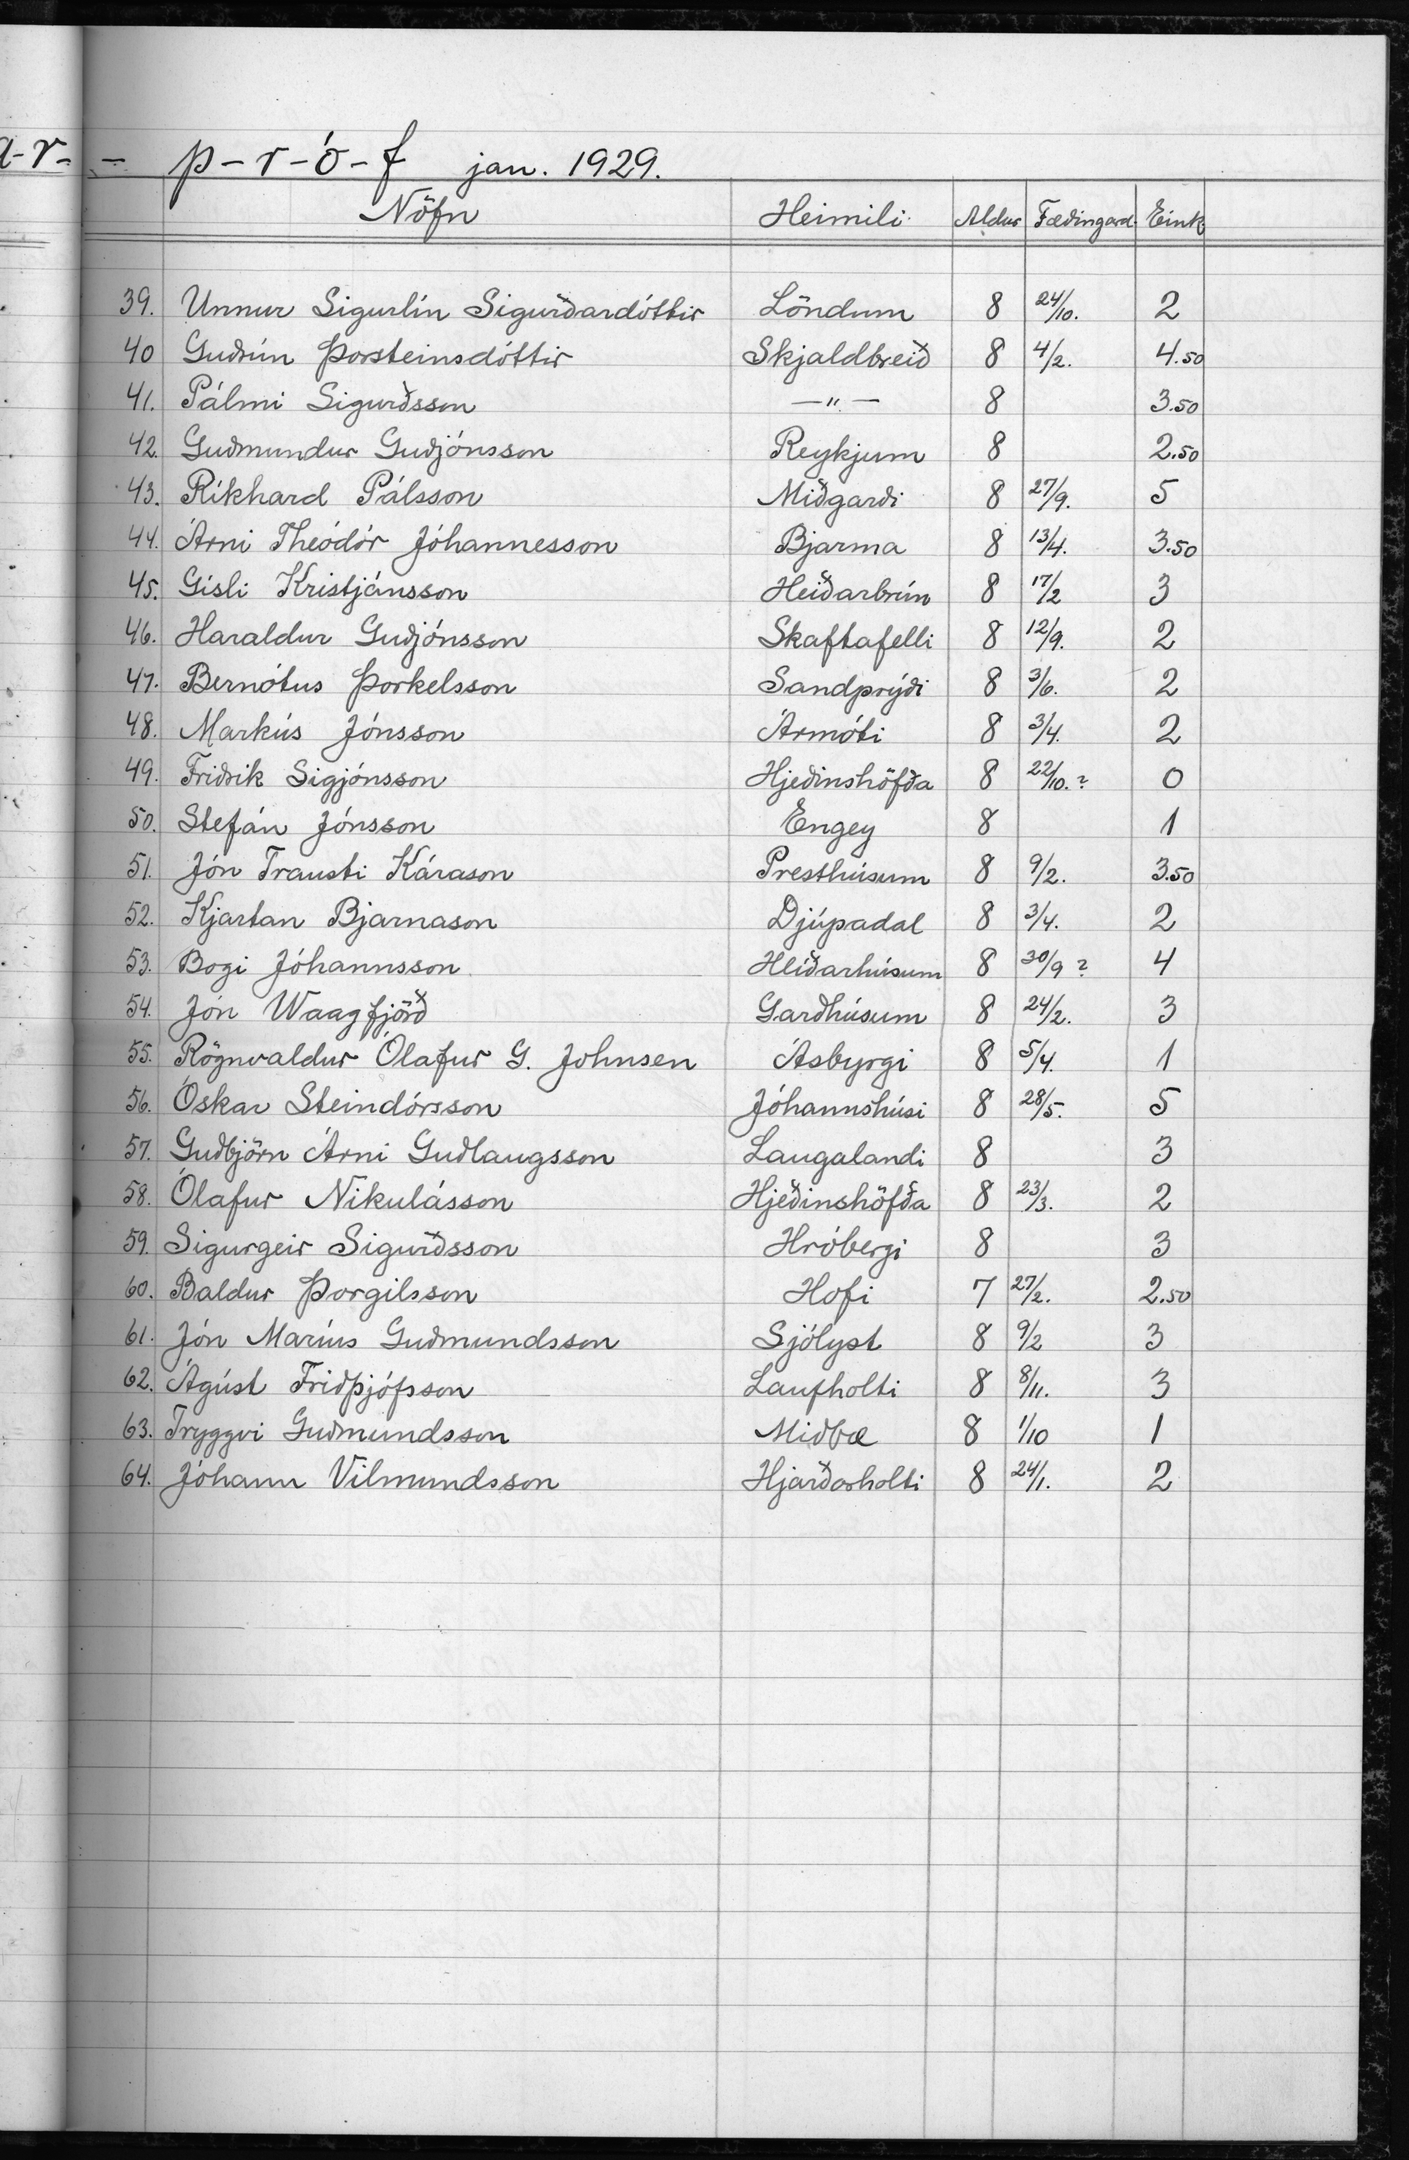 a-r- - p-r-ó-f jan. 1929.
Nöfn Heimili Aldur Fæðingard. Eink
39. Unnur Sigurlín Sigurðardóttir Löndum 8 24/10. 2
40 Guðrún Þorsteinsdóttir Skjaldbreið 8 4/2. 4.50
41. Pálmi Sigurðsson —"— 8 3.50
42. Guðmundur Guðjónsson Reykjum 8 2.50
43. Ríkhard Pálsson Miðgarði 8 27/9. 5
44. Árni Theódór Jóhannesson Bjarma 8 13/4. 3.50
45. Gísli Kristjánsson Heiðarbrún 8 17/2 3
46. Haraldur Guðjónsson Skaftafelli 8 12/9. 2
47. Bernótus Þorkelsson Sandprýði 8 3/6. 2
48. Markús Jónsson Ármóti 8 3/4. 2
49. Friðrik Sigjónsson Hjeðinshöfða 8 22/10.? 0
50. Stefán Jónsson Engey 8 1
51. Jón Trausti Kárason Presthúsum 8 9/2. 3.50
52. Kjartan Bjarnason Djúpadal 8 3/4. 2
53. Bogi Jóhannsson Hlíðarhúsum 8 30/9 ? 4
54. Jón Waagfjörð Garðhúsum 8 24/2. 3
55. Rögnvaldur Ólafur G. Johnsen Ásbyrgi 8 5/4. 1
56. Óskar Steindórsson Jóhannshúsi 8 28/5. 5
57. Guðbjörn Árni Guðlaugsson Laugalandi 8 3
58. Ólafur Nikulásson Hjeðinshöfða 8 23/3. 2
59. Sigurgeir Sigurðsson Hróbergi 8 3
60. Baldur Þorgilsson Hofi 7 27/2. 2.50
61. Jón Maríus Guðmundsson Sjólyst 8 9/2 3
62. Ágúst Friðþjófsson Laufholti 8 8/11. 3
63. Tryggvi Guðmundsson Miðbæ 8 1/10 1
64. Jóhann Vilmundsson Hjarðarholti 8 24/1. 2